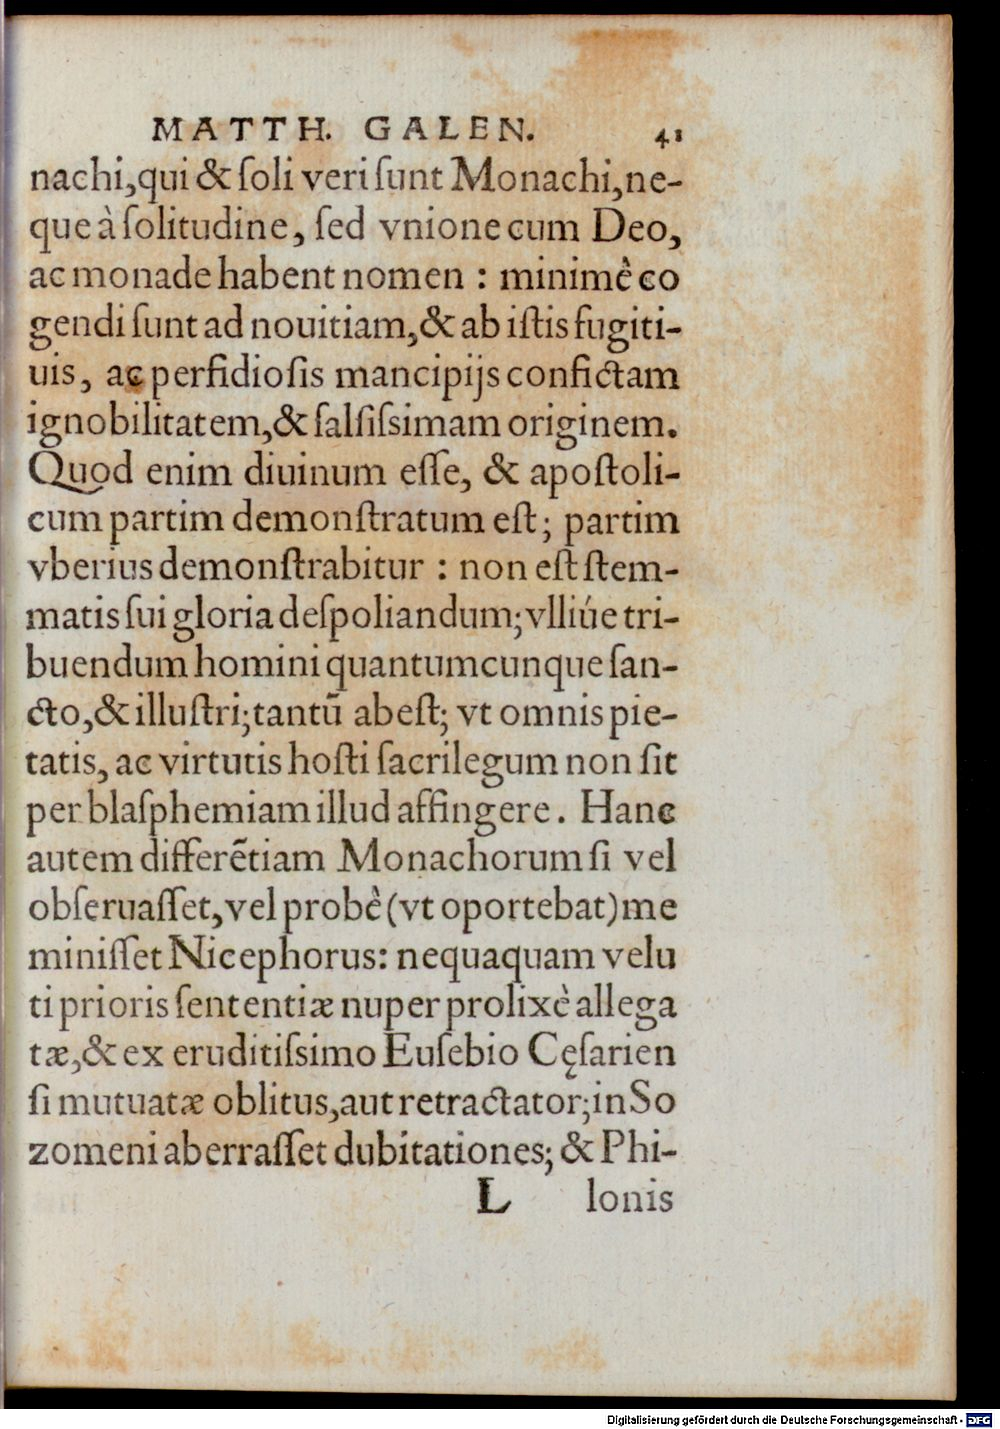 MATTH. GALEN. 41
nachi,qui & ſoli veri ſunt Monachi,ne-
que à ſolitudine, ſed vnione cum Deo,
ac monade habent nomen : minimè co
gendi ſunt ad nouitiam,& ab iſtis fugiti-
uis, ac perfidioſis mancipijs confictam
ignobilitatem,& falſiſsimam originem.
Quod enim diuinum eſſe, & apoſtoli-
cum partim demonſtratum eſt; partim
vberius demonſtrabitur : non eſt ſtem-
matis ſui gloria deſpoliandum;vlliúe tri-
buendum homini quantumcunque ſan-
cto,& illuſtri;tantū abeſt; vt omnis pie-
tatis, ac virtutis hoſti ſacrilegum non ſit
per blaſphemiam illud affingere. Hanc
autem differētiam Monachorum ſi vel
obſeruaſſet,vel probè(vt oportebat)me
miniſſet Nicephorus: nequaquam velu
ti prioris ſententiæ nuper prolixè allega
tæ,& ex eruditiſsimo Euſebio Cęſarien
ſi mutuatæ oblitus,aut retractator;in So
zomeni aberraſſet dubitationes; & Phi-
L lonis
Digitalisierung gefördert durch die Deutsche Forschungsgemeinschaft - DFG